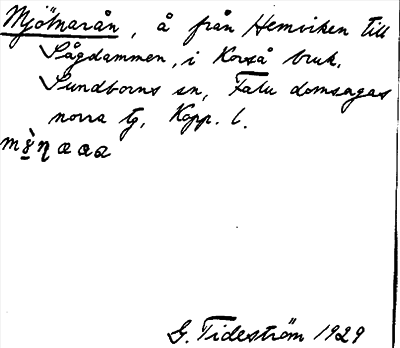 Mjölnarån, å från Hemviken till
Sågdammen, i Korså bruk,
Sundborns sn, Falu domsagas
norra tg, Kopp. l.
G. Tideström 1929